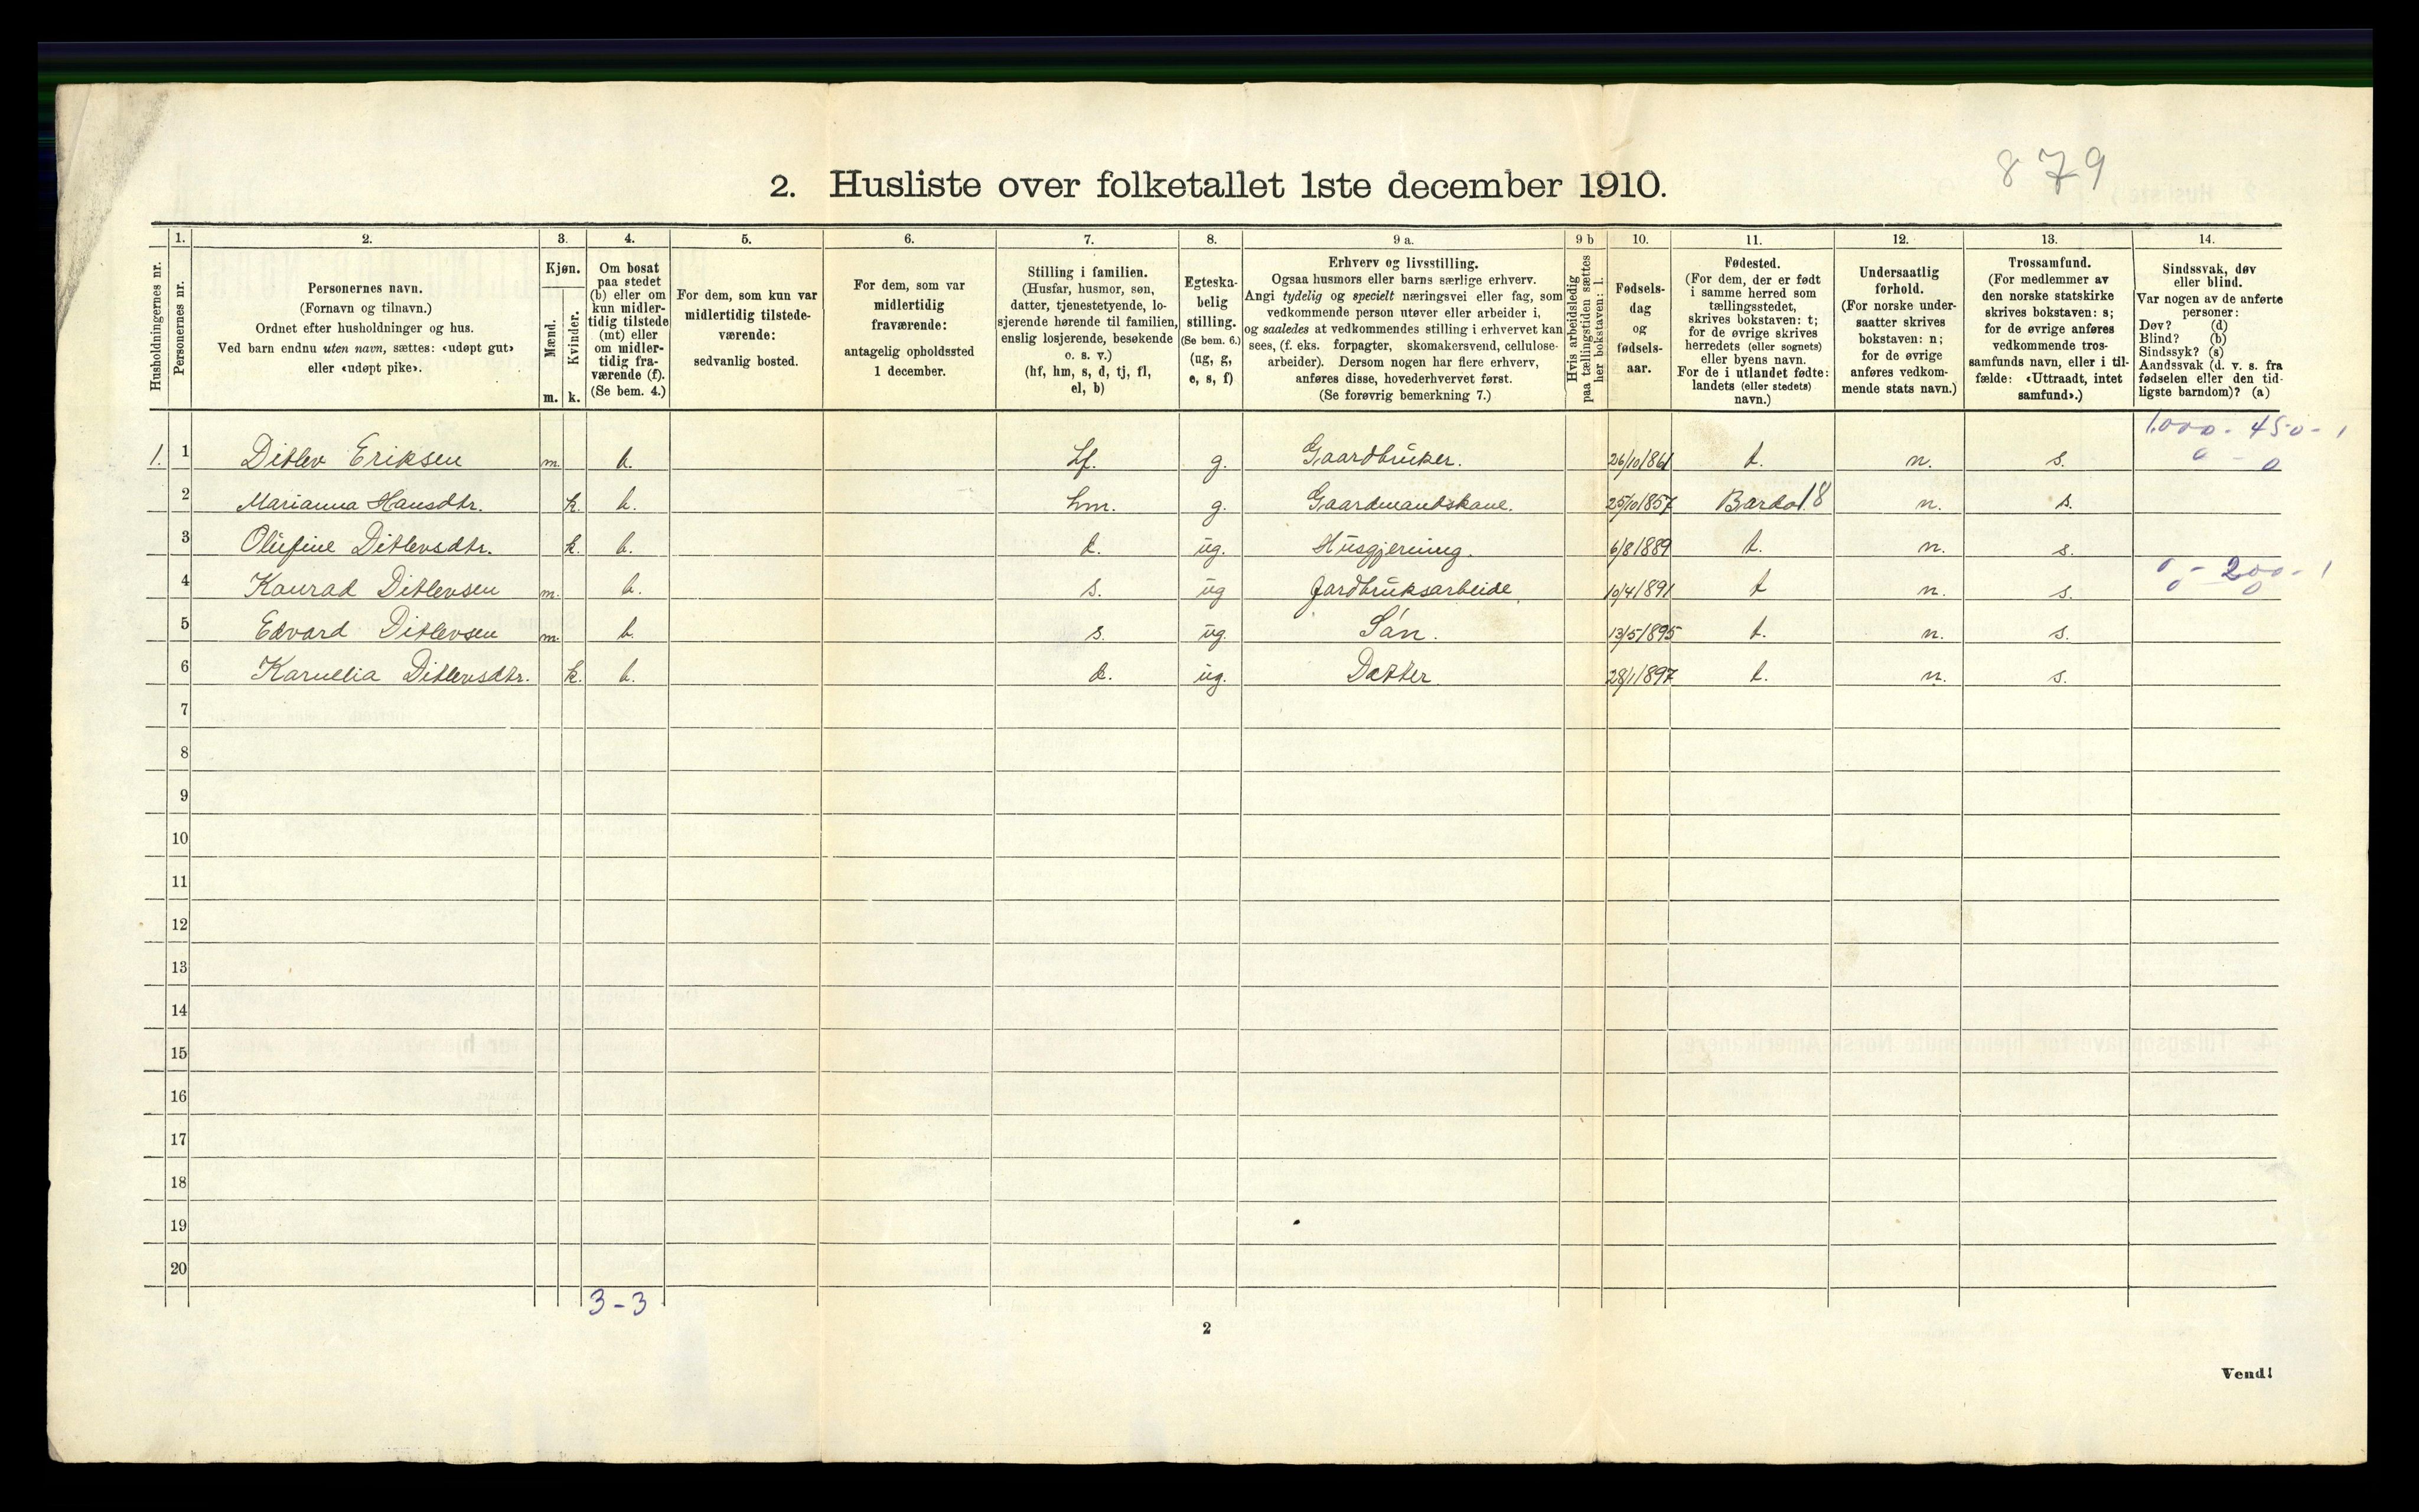 879
2. Husliste over folketallet 1ste december 1910.
Husholdningernes nr.
1.
Personernes nr.
2.
Personernes navn.
(Fornavn og tilnavn.)
Ordnet efter husholdninger og hus.
Ved barn endnu uten navn, sættes: «udøpt gut»
eller «udøpt pike».
3.
Kjøn.
Mænd.
Kvinder.
m. k.
4.
Om bosat
paa stedet
(b) eller om
kun midler-
tidig tilstede
(mt) eller
om midler-
tidig fra-
værende (f).
(Se bem. 4.)
5.
For dem, som kun var
midlertidig tilstede-
værende:
sedvanlig bosted.
6.
For dem, som var
midlertidig
fraværende:
antagelig opholdssted
1 december.
7.
Stilling i familien.
(Husfar, husmor, søn,
datter, tjenestetyende, lo-
sjerende hørende til familien,
enslig losjerende, besøkende
o. s. v.)
(hf, hm, s, d, tj, fl,
el, b)
8.
Egteska-
belig
stilling.
(Se bem. 6.)
(ug, g,
e, s, f)
9 a.
Erhverv og livsstilling.
Ogsaa husmors eller barns særlige erhverv.
Angi tydelig og specielt næringsvei eller fag, som
vedkommende person utøver eller arbeider i,
og saaledes at vedkommendes stilling i erhvervet kan
sees, (f. eks. forpagter, skomakersvend, cellulose-
arbeider). Dersom nogen har flere erhverv,
anføres disse, hovederhvervet først.
(Se forøvrig bemerkning 7.)
9 b
Hvis arbeidsledig
paa tællingstiden sættes
her bokstaven: l.
10.
Fødsels-
dag
og
fødsels-
aar.
11.
Fødested.
(For dem, der er født
i samme herred som
tællingsstedet,
skrives bokstaven: t;
for de øvrige skrives
herredets (eller sognets)
eller byens navn.
For de i utlandet fødte:
landets (eller stedets)
navn.)
12.
Undersaatlig
forhold.
(For norske under-
saatter skrives
bokstaven: n;
for de øvrige
anføres vedkom-
mende stats navn.)
13.
Trossamfund.
(For medlemmer av
den norske statskirke
skrives bokstaven: s;
for de øvrige anføres
vedkommende tros-
samfunds navn, eller i til-
fælde: «Uttraadt, intet
samfund».)
14.
Sindssvak, døv
eller blind.
Var nogen av de anførte
personer:
Døv? (d)
Blind? (b)
Sindssyk? (s)
Aandssvak (d. v. s. fra
fødselen eller den tid-
ligste barndom)? (a)
1.000 - 450 - 1
1. 1 Ditlev Eriksen m. b. hf. g. Gaardbruker. 26/10/861 t. n. s. 0 - 0
2 Marianna Hansdtr. k. b. hm. g. Gaardmandskone. 25/10/857 Bardo 18 n. s.
3 Olufine Ditlevsdtr. k. b. d. ug. Husgjerning. 6/8/889 t. n. s.
0 - 200 - 1
4 Konrad Ditlevsen m. b. s. ug Jardbruksarbeide. 10/4/891 t n. s. 0 0
5 Edvard Ditlevsen m. b. s. ug. Sön. 13/5/895 t. n. s.
6 Karnellia Ditlevsdtr. k. b. d. ug. Datter. 28/1/897 t. n. s.
7
8
9
10
11
12
13
14
15
16
17
18
19
20
3-3
2
Vend!